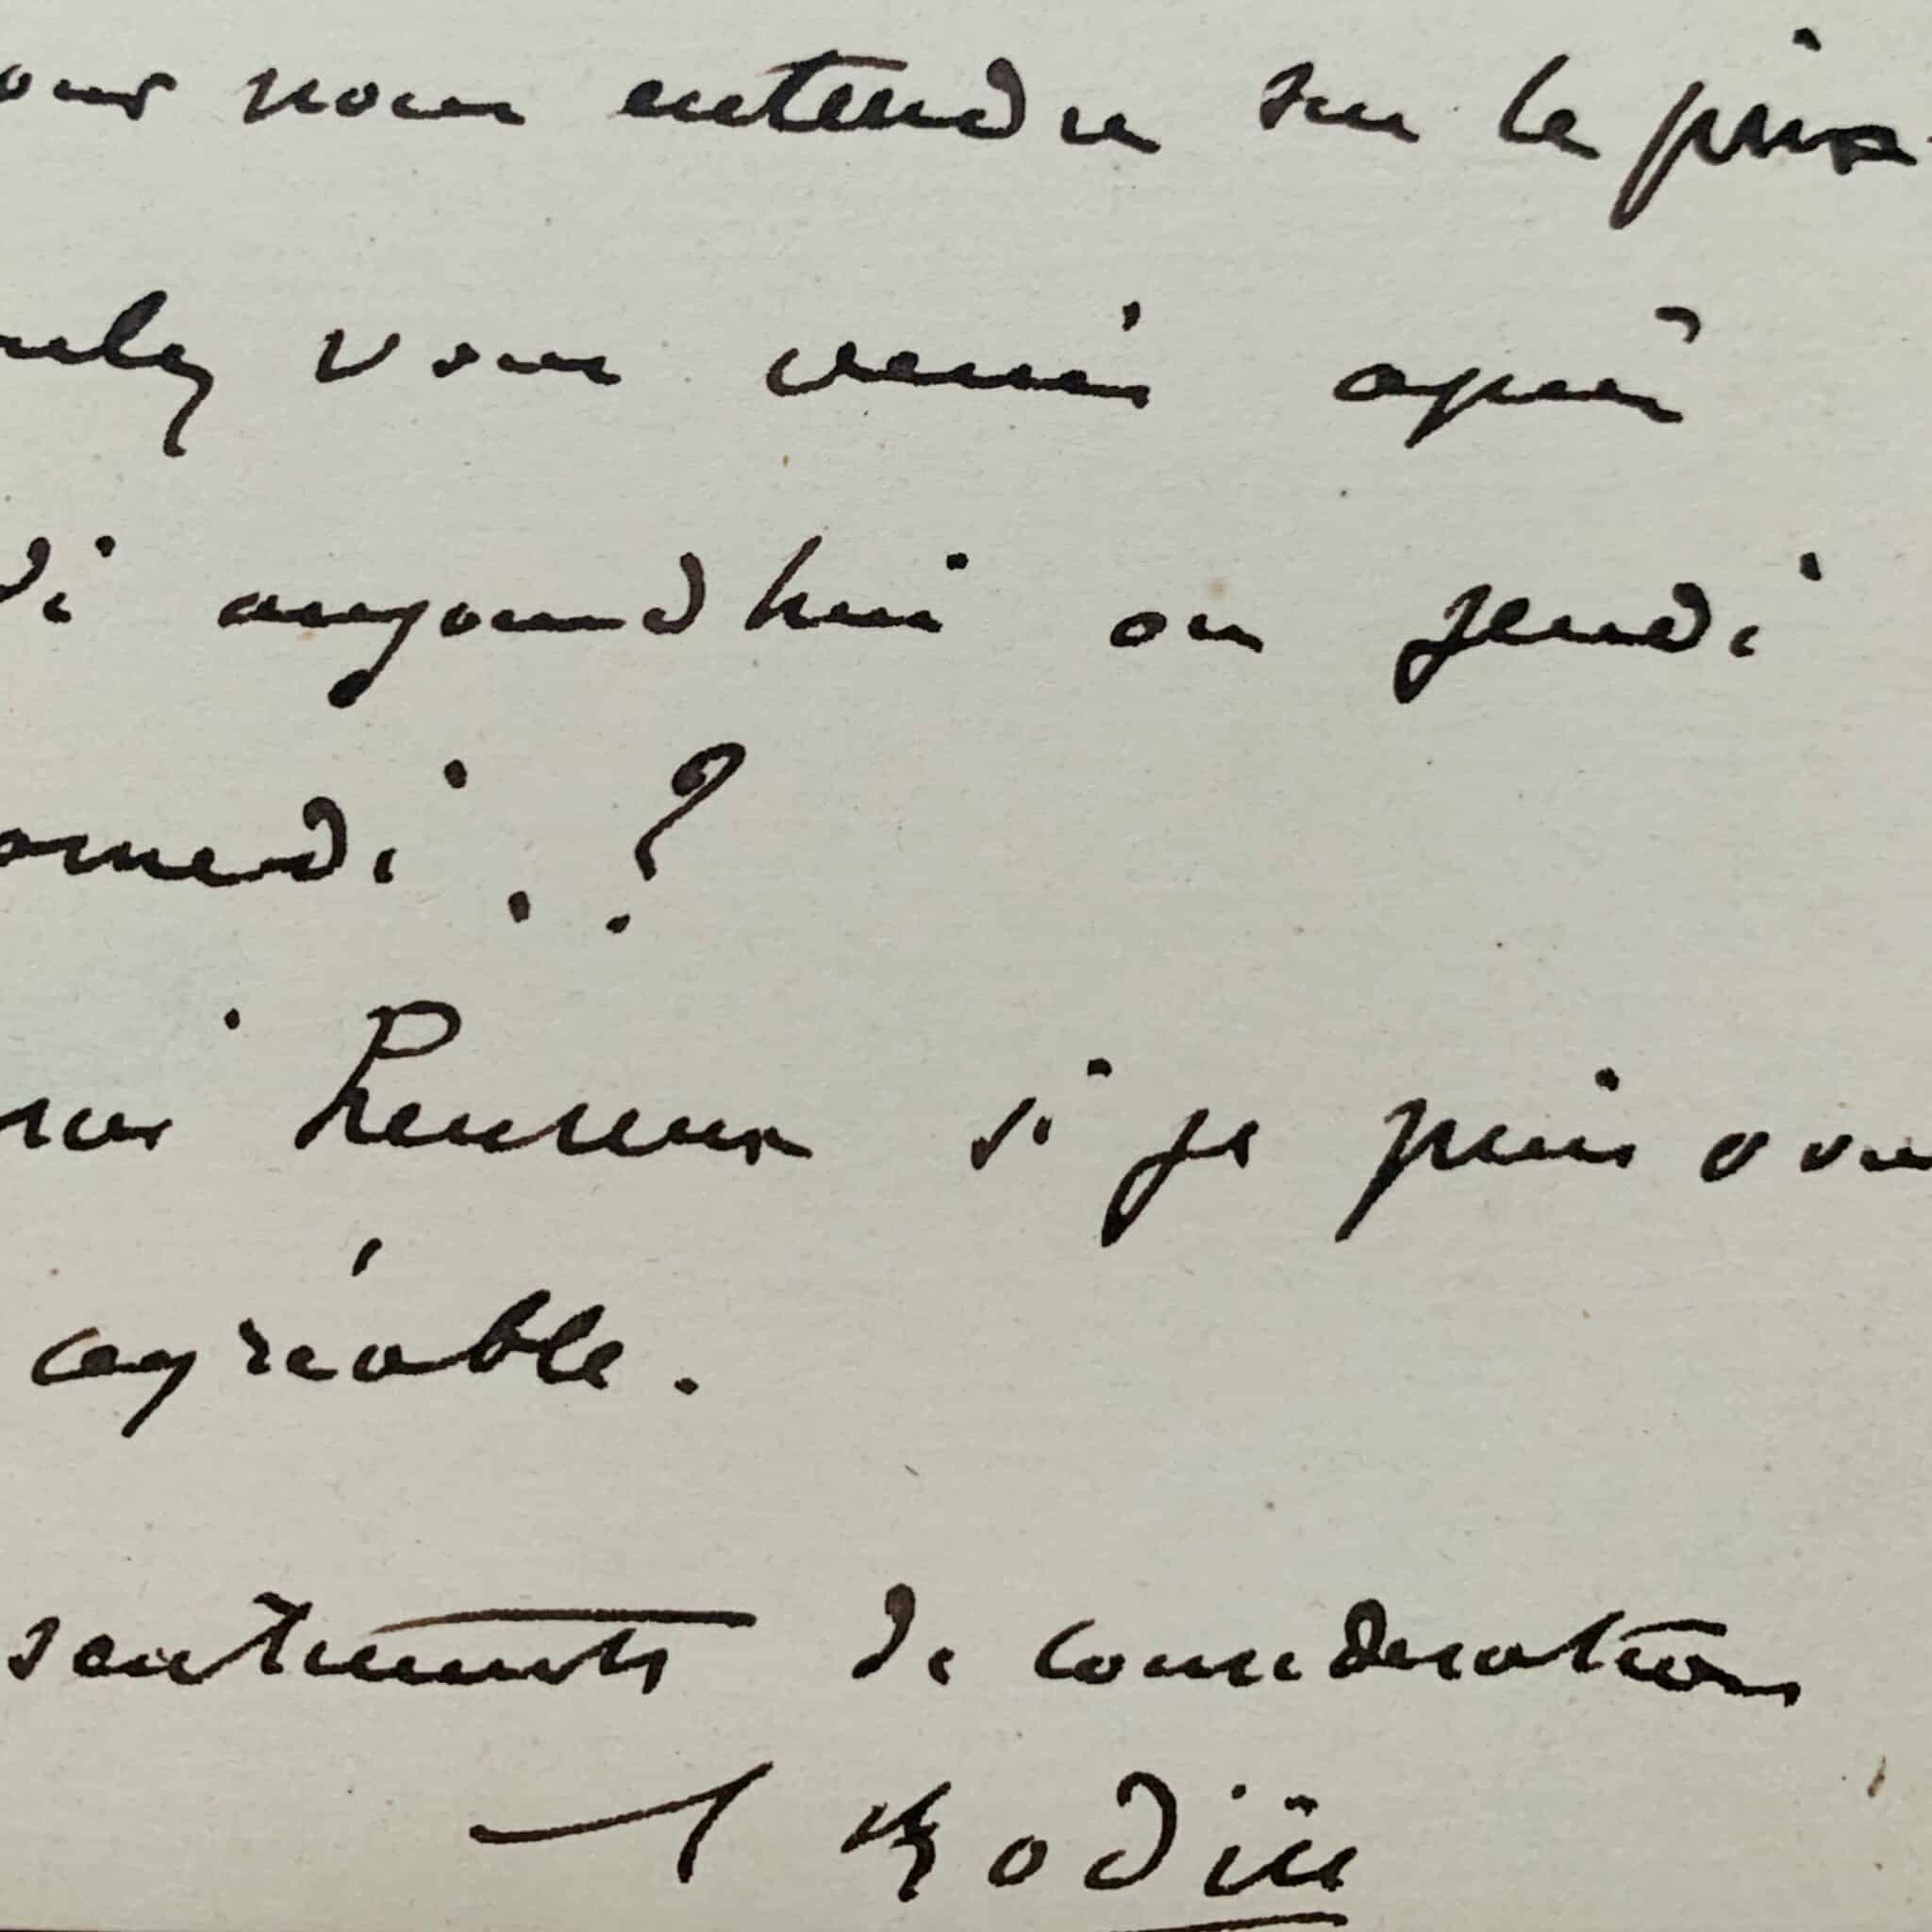 our nous entendre sur le prix
ulez vous venir après
di aujourdhui ou jeudi
amedi . ?
rai heureux si je puis vous
agréable .
sentiments de consideration
A Rodin